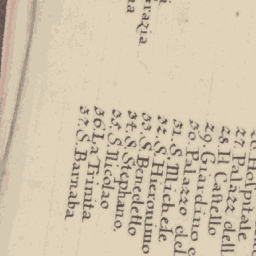 razia
na
26. Hospitale
27. Palazz dell
28. Il Castello
29. Giardino
30. Palazzo del
31. S. Michele
32. S. Hieronimo
33. S. Benedetto
34. S. Stephano
35. S. Nicolio
36. La Trinita
37. S. Barnaba